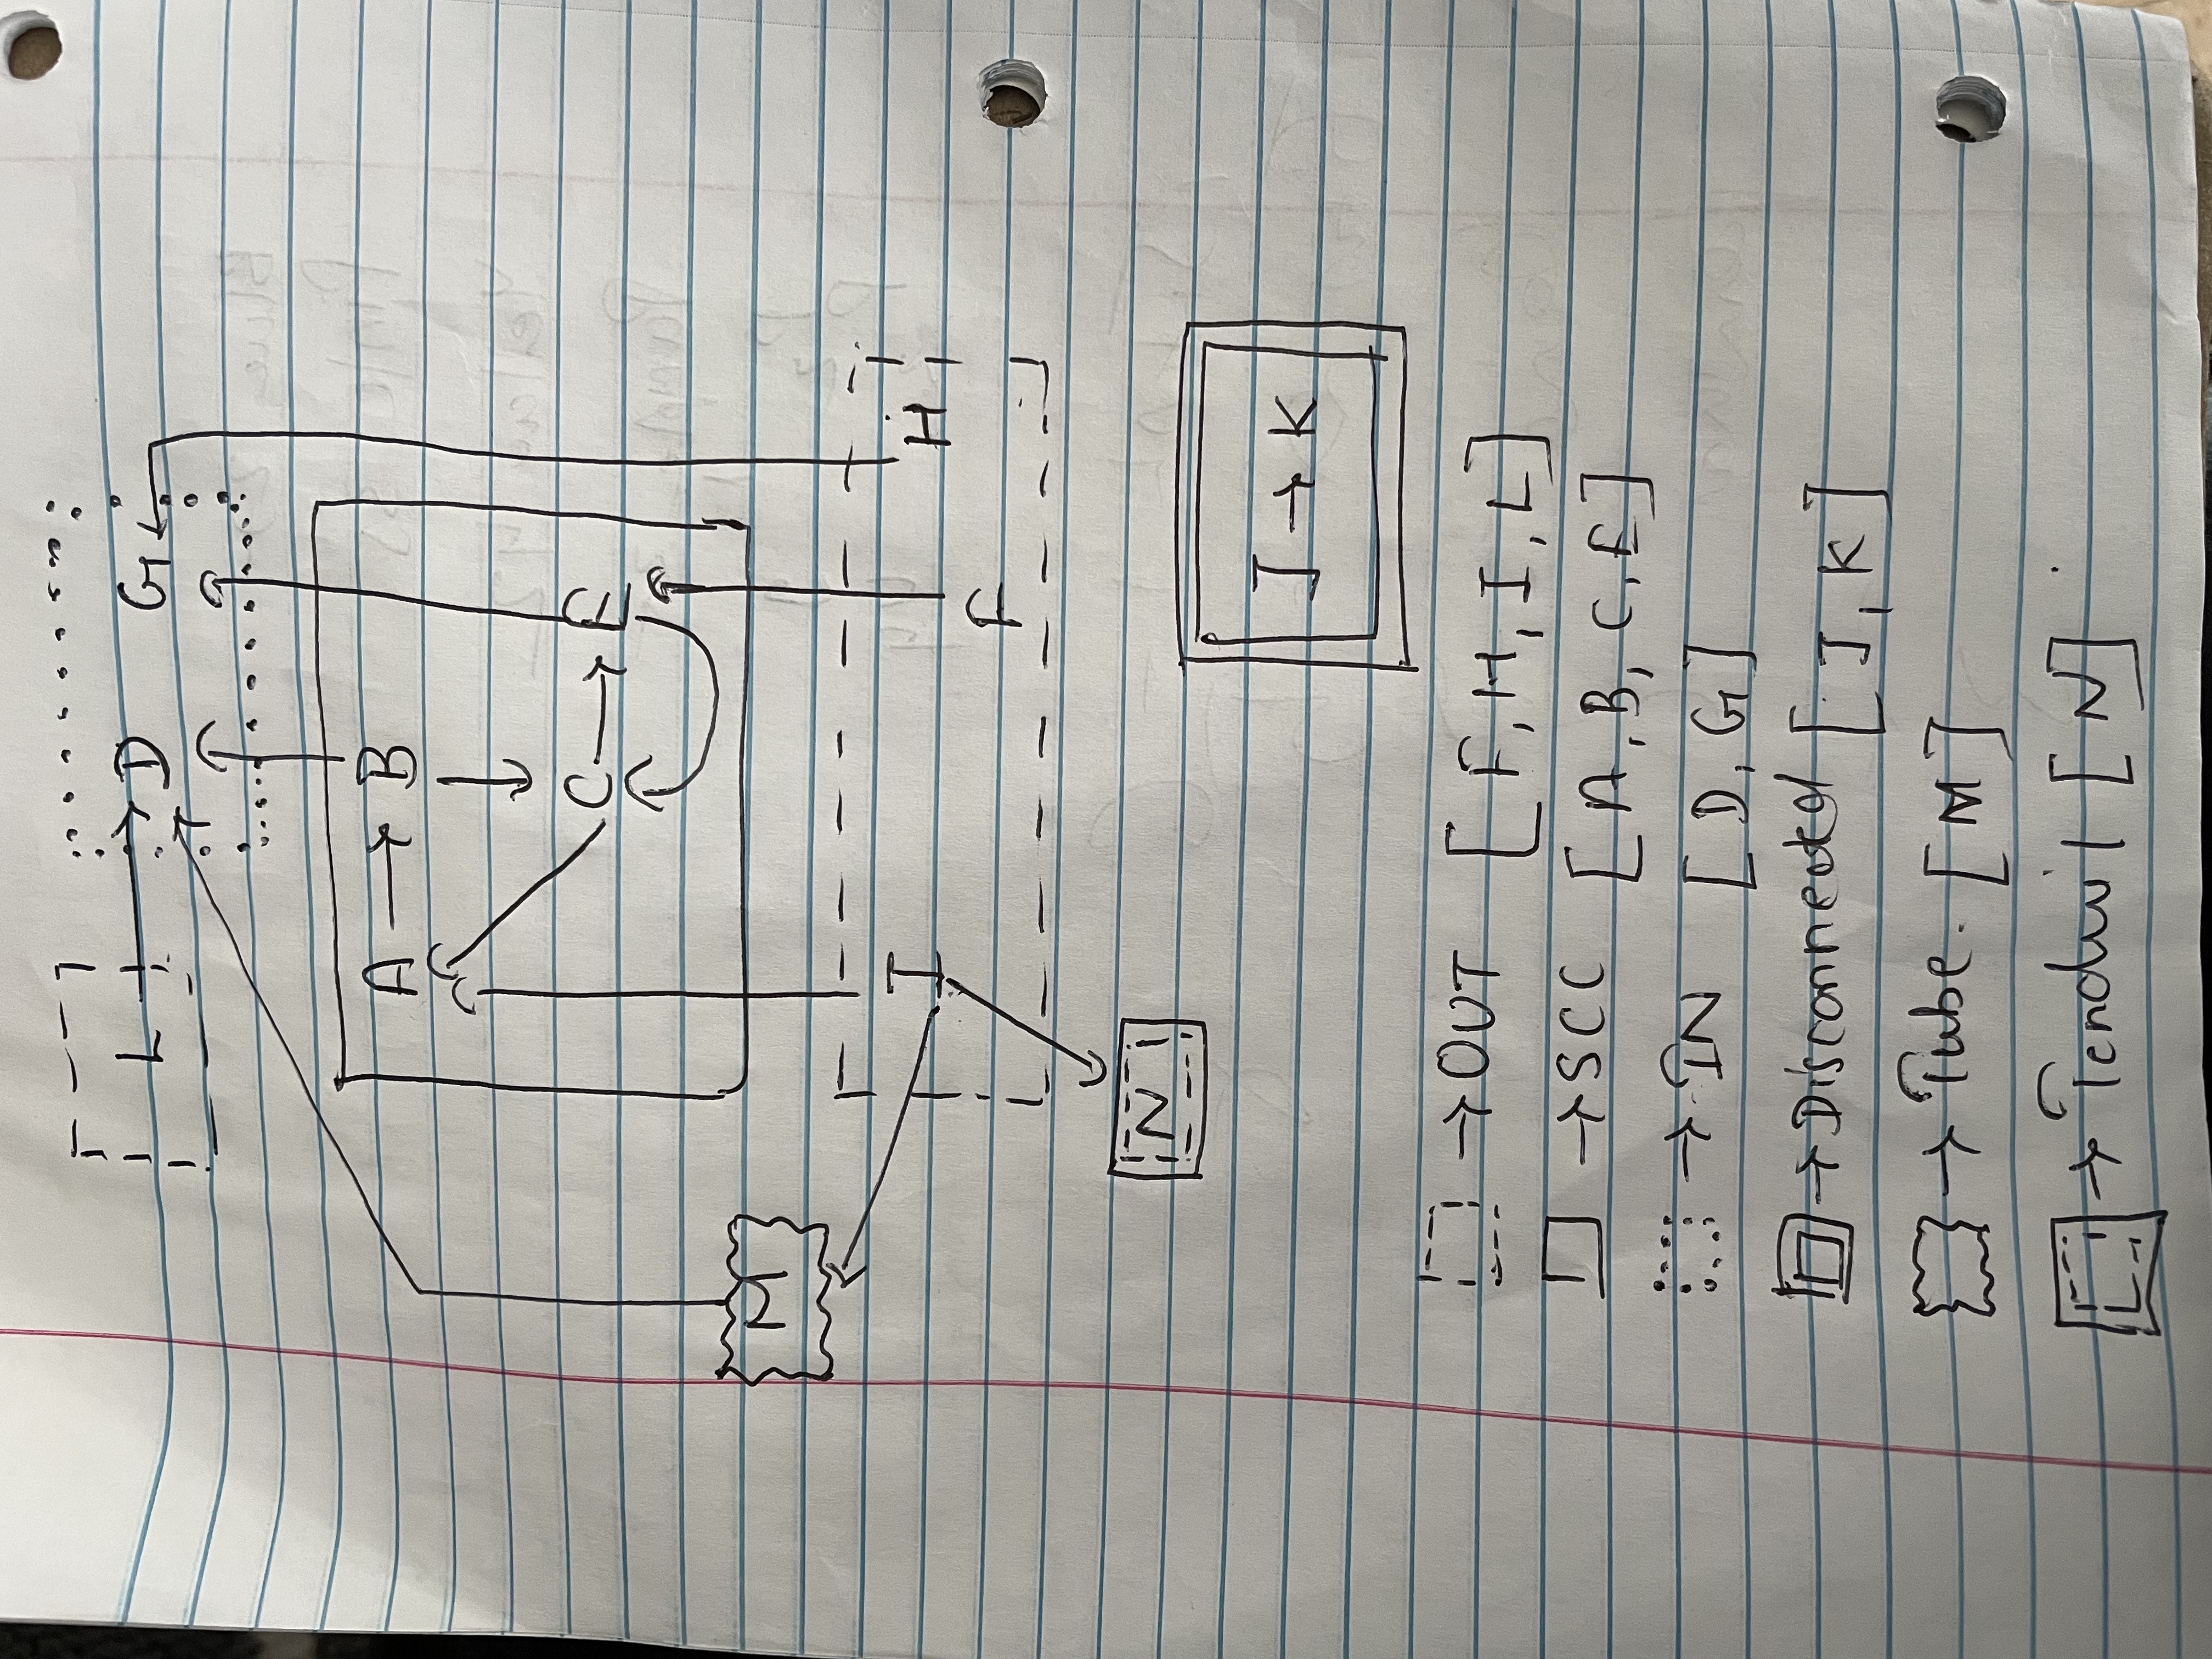 L → D G
A → B
C → E
M
I H
F
N
J → K
→ OUT [F, H, I, L]
→ SCC [A, B, C, E]
→ IN [D, G]
→ Disconnected [J, K]
→ Tube. [M]
→ Tendril [N]